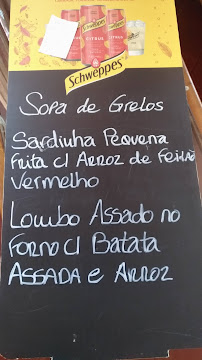 Schweppes
Sopa de Grelos
Sardinha Pequena
Frita c/ Arroz de Feijão
Vermelho
Lombo Assado no
Forno c/ Batata
Assada e Arroz